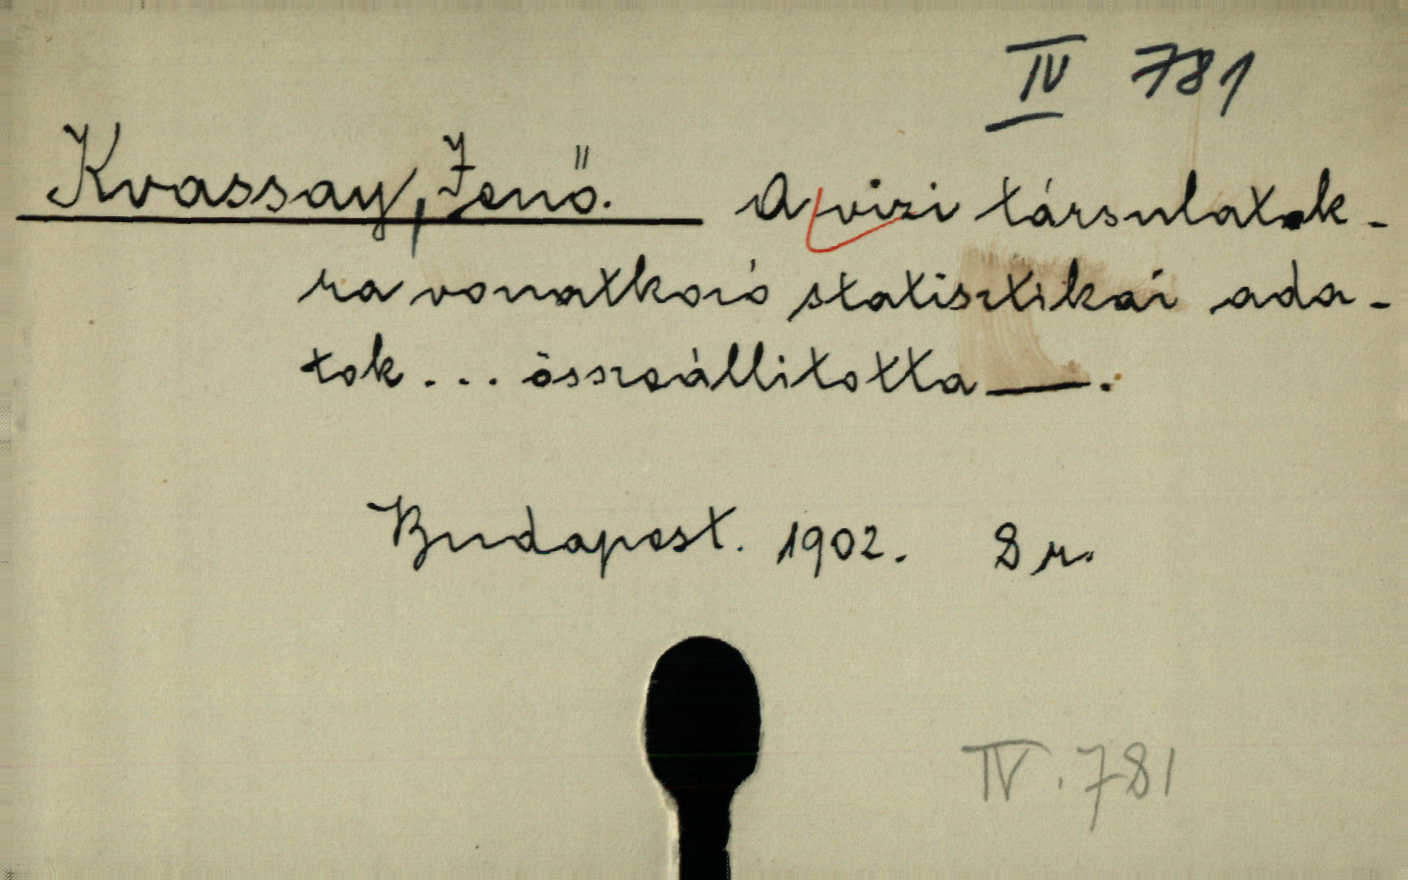 IV 781
Kvassay, Jenő. A vizi társulatok-
ra vonatkozó statisztikai ada-
tok... összeállitotta —.
Budapest. 1902. 8 r.
IV. 781